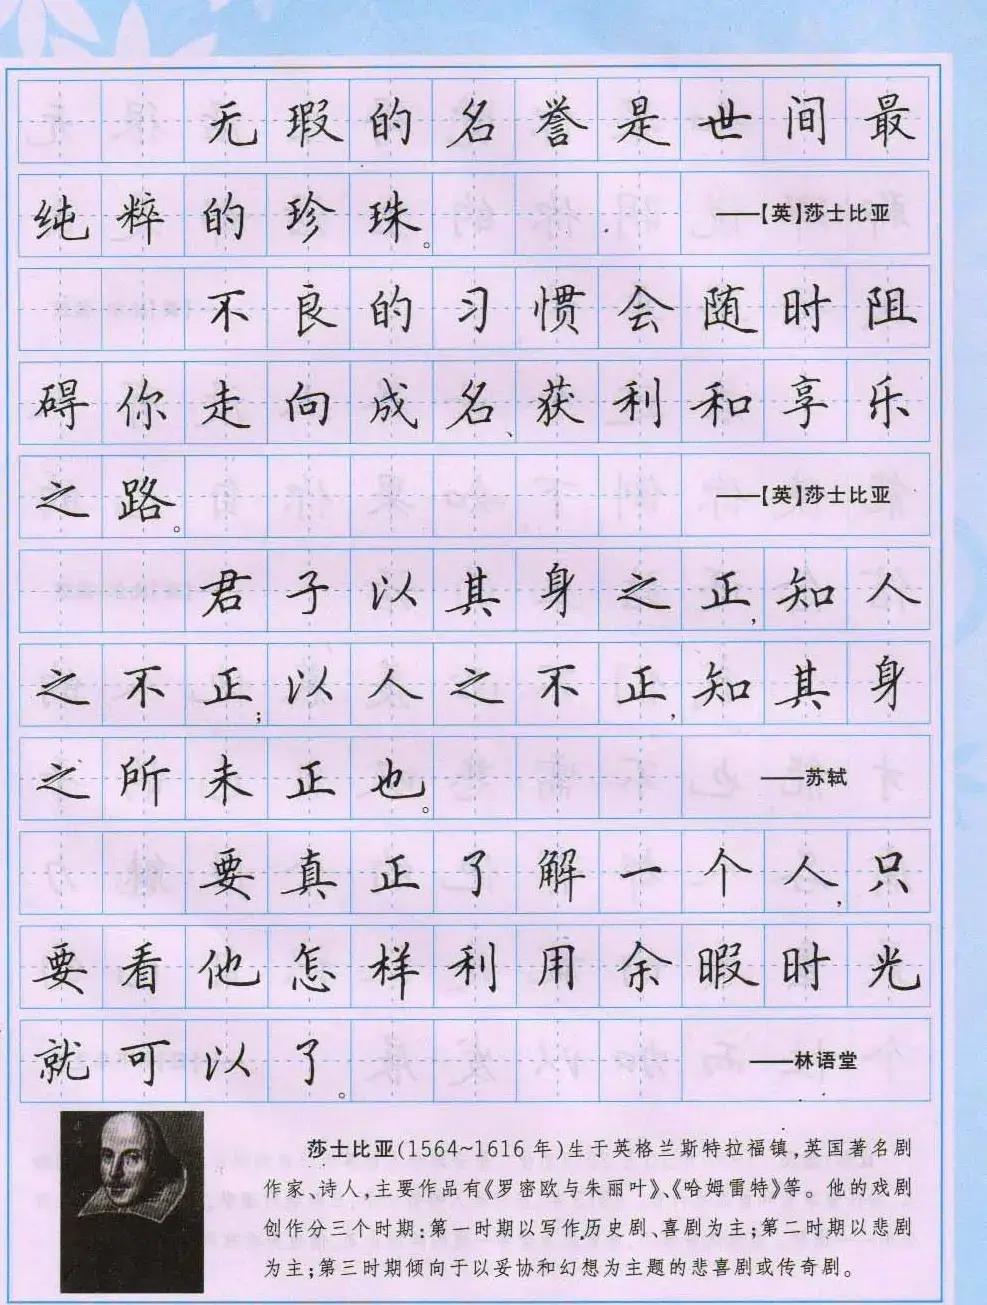 无瑕的名誉是世间最
纯粹的珍珠。 ——【英】莎士比亚
不良的习惯会随时阻
碍你走向成名、获利和享乐
之路。 ——【英】莎士比亚
君子以其身之正,知人
之不正;以人之不正,知其身
之所未正也。 ——苏轼
要真正了解一个人,只
要看他怎样利用余暇时光
就可以了。 ——林语堂
莎士比亚(1564~1616年)生于英格兰斯特拉福镇,英国著名剧
作家、诗人,主要作品有《罗密欧与朱丽叶》、《哈姆雷特》等。他的戏剧
创作分三个时期:第一时期以写作历史剧、喜剧为主;第二时期以悲剧
为主;第三时期倾向于以妥协和幻想为主题的悲喜剧或传奇剧。